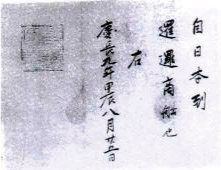 自日本到
暹邏商船也
右
慶長九年甲辰八月廿五日